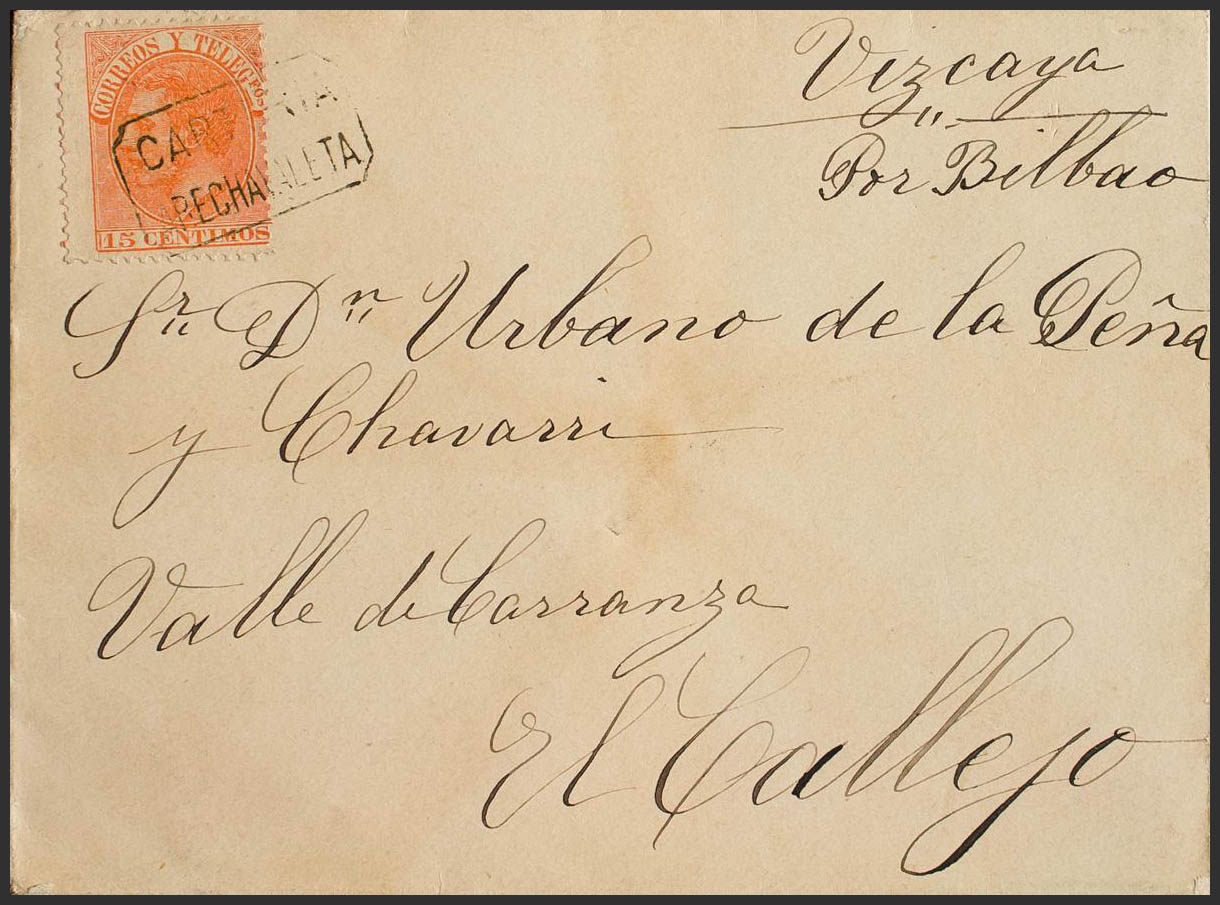 CORREOS Y TELEGFOS
15 CENTIMOS
Vizcaya
Por Bilbao
Sr. Dn. Urbano de la Peña
y Chavarri
Valle de Carranza
El Callejo